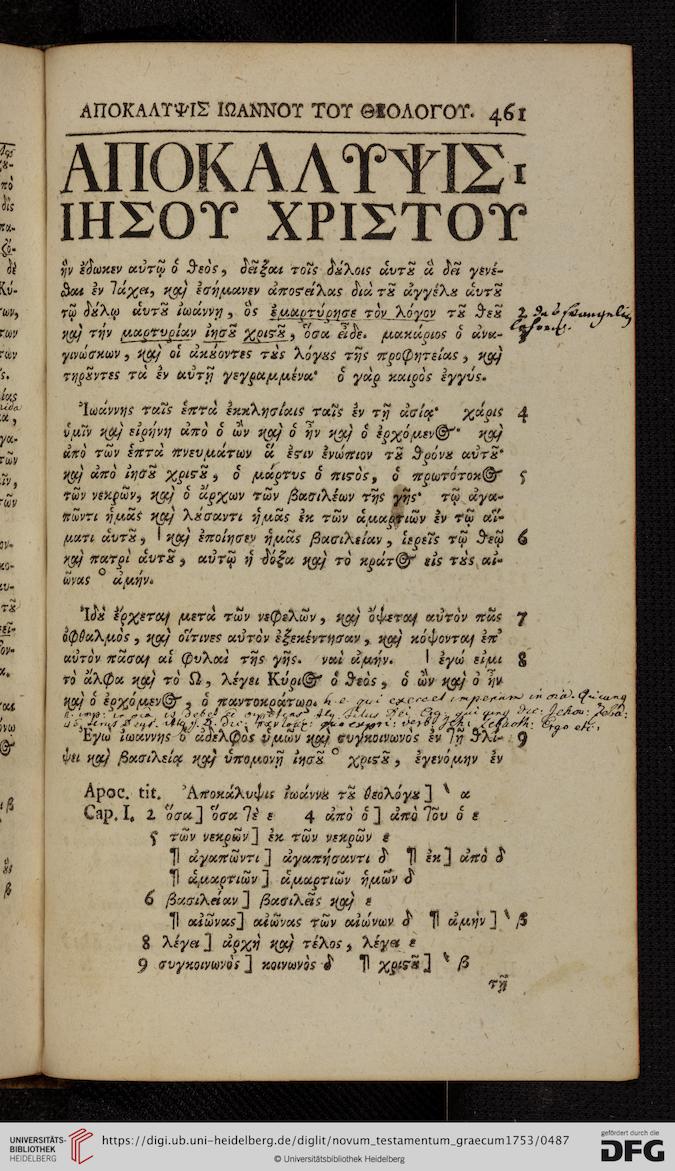 ΑΠΟΚΑΛΥΨΙΣ ΙΩΑΝΝΟΥ ΤΟΥ ΘΕΟΛΟΓΟΥ. 461
ΑΠΟΚΑΛΥΨΙΣ 1
ΙΗΣΟΥ ΧΡΙΣΤΟΥ
ἣν ἔδωκεν αὐτῷ ὁ θεὸς, δεῖξαι τοῖς δούλοις αὑτοῦ ἃ δεῖ γενέ-
σθαι ἐν τάχει, καὶ ἐσήμανεν ἀποστείλας διὰ τοῦ ἀγγέλου αὑτοῦ
τῷ δούλῳ αὑτοῦ ἰωάννῃ, ὃς ἐμαρτύρησε τὸν λόγον τοῦ θεοῦ 2
καὶ τὴν μαρτυρίαν ἰησοῦ χριστοῦ, ὅσα εἶδε. μακάριος ὁ ἀνα-
γινώσκων, καὶ οἱ ἀκούοντες τοὺς λόγους τῆς προφητείας, καὶ
τηροῦντες τὰ ἐν αὐτῇ γεγραμμένα· ὁ γὰρ καιρὸς ἐγγύς.
Ἰωάννης ταῖς ἑπτὰ ἐκκλησίαις ταῖς ἐν τῇ ἀσίᾳ· χάρις 4
ὑμῖν καὶ εἰρήνη ἀπὸ ὁ ὢν καὶ ὁ ἦν καὶ ὁ ἐρχόμενος· καὶ
ἀπὸ τῶν ἑπτὰ πνευμάτων ἅ ἐστιν ἐνώπιον τοῦ θρόνου αὐτοῦ·
καὶ ἀπὸ ἰησοῦ χριστοῦ, ὁ μάρτυς ὁ πιστὸς, ὁ πρωτότοκος 5
τῶν νεκρῶν, καὶ ὁ ἄρχων τῶν βασιλέων τῆς γῆς· τῷ ἀγα-
πῶντι ἡμᾶς καὶ λούσαντι ἡμᾶς ἐκ τῶν ἁμαρτιῶν ἐν τῷ αἵ-
ματι αὑτοῦ, | καὶ ἐποίησεν ἡμᾶς βασιλείαν, ἱερεῖς τῷ θεῷ 6
καὶ πατρὶ αὑτοῦ, αὐτῷ ἡ δόξα καὶ τὸ κράτος εἰς τοὺς αἰ-
ῶνας ° ἀμήν.
Ἰδοὺ ἔρχεται μετὰ τῶν νεφελῶν, καὶ ὄψεται αὐτὸν πᾶς 7
ὀφθαλμὸς, καὶ οἵτινες αὐτὸν ἐξεκέντησαν, καὶ κόψονται ἐπ'
αὐτὸν πᾶσαι αἱ φυλαὶ τῆς γῆς. ναὶ ἀμήν. | ἐγώ εἰμι 8
τὸ ἄλφα καὶ τὸ Ω, λέγει Κύριος ὁ θεὸς, ὁ ὢν καὶ ὁ ἦν
καὶ ὁ ἐρχόμενος, ὁ παντοκράτωρ.
Ἐγὼ ἰωάννης ὁ ἀδελφὸς ὑμῶν καὶ συγκοινωνὸς ἐν τῇ θλί- 9
ψει καὶ βασιλείᾳ καὶ ὑπομονῇ ἰησοῦ ° χριστοῦ, ἐγενόμην ἐν
Apoc. tit. Ἀποκάλυψις ἰωάννου τοῦ θεολόγου] ‵ α
Cap. I. 2 ὅσα] ὅσα τε ε 4 ἀπὸ ὁ] ἀπὸ τοῦ ὁ ε
5 τῶν νεκρῶν] ἐκ τῶν νεκρῶν ε
¶ ἀγαπῶντι] ἀγαπήσαντι δ ¶ ἐκ] ἀπὸ δ
¶ ἁμαρτιῶν] ἁμαρτιῶν ἡμῶν δ
6 βασιλείαν] βασιλεῖς καὶ ε
¶ αἰῶνας] αἰῶνας τῶν αἰώνων δ ¶ ἀμήν] ‵ β
8 λέγει] ἀρχὴ καὶ τέλος, λέγει ε
9 συγκοινωνὸς] κοινωνὸς δ ¶ χριστοῦ] ‵ β
τῇ
UNIVERSITÄTS-
BIBLIOTHEK
HEIDELBERG
https://digi.ub.uni-heidelberg.de/diglit/novum_testamentum_graecum1753/0487
© Universitätsbibliothek Heidelberg
gefördert durch die
DFG